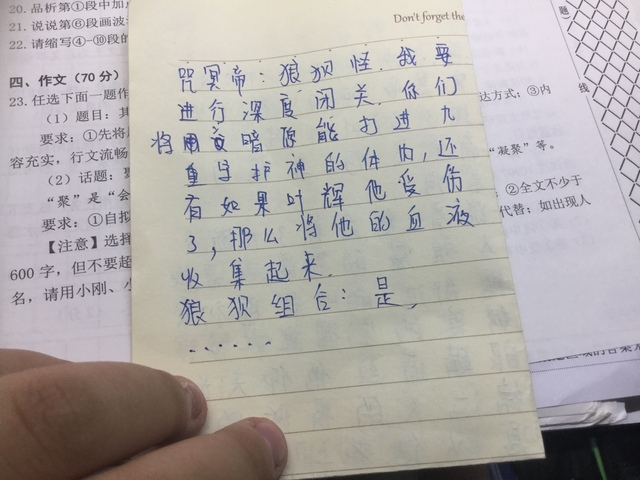 20. 品析第①段中加
21. 说说第⑥段画波
22. 请缩写④-⑩段的
四、作文（70 分）
23. 任选下面一题作
（1）题目：其
要求：①先将题
容充实，行文流畅
（2）话题：聚
“聚”是“会
要求：①自拟
【注意】选择
600 字，但不要超
名，请用小刚、小
Don't forget the
咒冥帝：狼狈怪.我要
进行深度闭关.你们
将用黑暗原能打进九
重守护神的体内,还
有如果叶辉他受伤
了,那么将他的血液
收集起来.
狼狈组合：是.
......
题）
达方式；③内
线
“凝聚”等。
②全文不少于
代替；如出现人